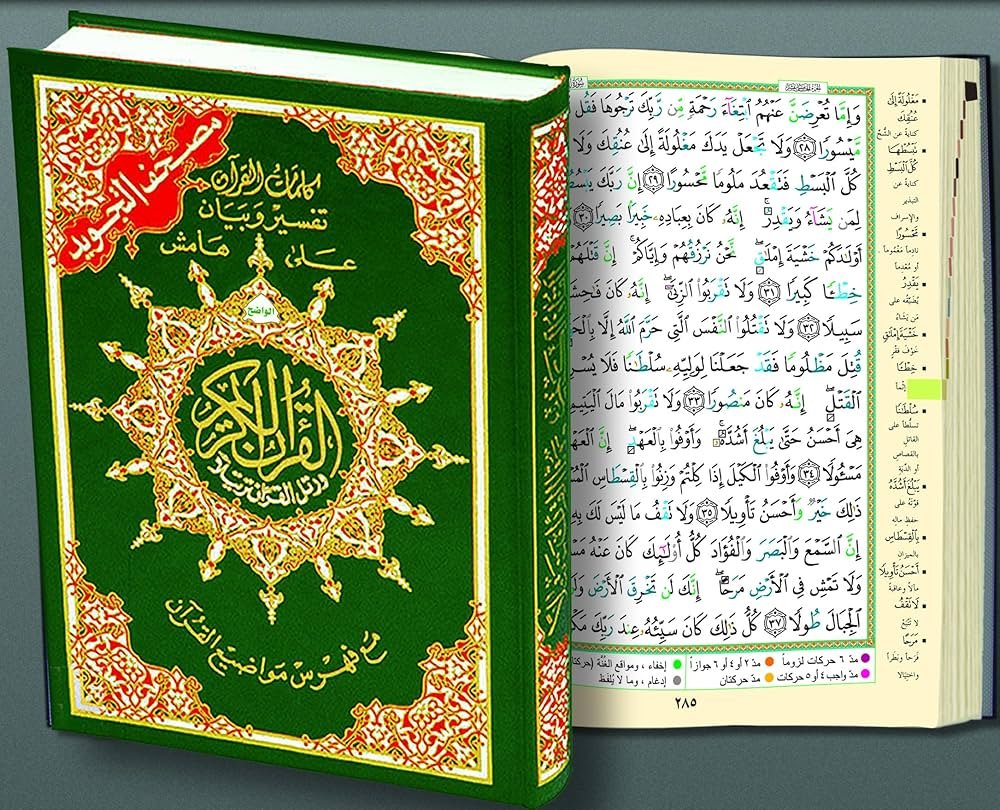 مصحف التجويد
كلمات القرآن
تفسير وبيان
على هامش
الواضح
القرآن الكريم
ورتل القرآن ترتيلا
مع فهرس مواضيع القرآن
وَإِمَّا تُعْرِضَنَّ عَنْهُمُ ٱبْتِغَآءَ رَحْمَةٍ مِّن رَّبِّكَ تَرْجُوهَا فَقُل
مَّيْسُورًا ٢٨ وَلَا تَجْعَلْ يَدَكَ مَغْلُولَةً إِلَىٰ عُنُقِكَ وَلَا
كُلَّ ٱلْبَسْطِ فَتَقْعُدَ مَلُومًا مَّحْسُورًا ٢٩ إِنَّ رَبَّكَ يَبْسُطُ
لِمَن يَشَآءُ وَيَقْدِرُ ۚ إِنَّهُۥ كَانَ بِعِبَادِهِۦ خَبِيرًۢا بَصِيرًا ٣٠
أَوْلَٰدَكُمْ خَشْيَةَ إِمْلَٰقٍ ۖ نَّحْنُ نَرْزُقُهُمْ وَإِيَّاكُمْ ۚ إِنَّ قَتْلَهُمْ
خِطْـًٔا كَبِيرًا ٣١ وَلَا تَقْرَبُوا۟ ٱلزِّنَىٰٓ ۖ إِنَّهُۥ كَانَ فَٰحِشَ
سَبِيلًا ٣٢ وَلَا تَقْتُلُوا۟ ٱلنَّفْسَ ٱلَّتِى حَرَّمَ ٱللَّهُ إِلَّا بِٱلْحَ
قُتِلَ مَظْلُومًا فَقَدْ جَعَلْنَا لِوَلِيِّهِۦ سُلْطَٰنًا فَلَا يُسْرِ
ٱلْقَتْلِ ۖ إِنَّهُۥ كَانَ مَنصُورًا ٣٣ وَلَا تَقْرَبُوا۟ مَالَ ٱلْيَتِيمِ
هِىَ أَحْسَنُ حَتَّىٰ يَبْلُغَ أَشُدَّهُۥ ۚ وَأَوْفُوا۟ بِٱلْعَهْدِ ۖ إِنَّ ٱلْعَهْ
مَسْـُٔولًا ٣٤ وَأَوْفُوا۟ ٱلْكَيْلَ إِذَا كِلْتُمْ وَزِنُوا۟ بِٱلْقِسْطَاسِ
ذَٰلِكَ خَيْرٌ وَأَحْسَنُ تَأْوِيلًا ٣٥ وَلَا تَقْفُ مَا لَيْسَ لَكَ بِهِ
إِنَّ ٱلسَّمْعَ وَٱلْبَصَرَ وَٱلْفُؤَادَ كُلُّ أُو۟لَٰٓئِكَ كَانَ عَنْهُ مَسْ
وَلَا تَمْشِ فِى ٱلْأَرْضِ مَرَحًا ۖ إِنَّكَ لَن تَخْرِقَ ٱلْأَرْضَ وَلَ
ٱلْجِبَالَ طُولًا ٣٧ كُلُّ ذَٰلِكَ كَانَ سَيِّئُهُۥ عِندَ رَبِّكَ مَكْ
مدّ ٦ حركات لزوماً مدّ ٢ أو ٤ أو ٦ جوازاً إخفاء، ومواقع الغُنَّة (حركتا
مدّ واجب ٤ أو ٥ حركات مدّ حركتان إدغام، وما لا يُلفَظ
٢٨٥
مَغْلُولَةً إِلَىٰ
عُنُقِكَ
كناية عن الشُّحّ
تَبْسُطْهَا
كُلَّ ٱلْبَسْطِ
كناية عن
التبذير
والإسراف
مَّحْسُورًا
نادماً مغموماً
أو مُعْدِماً
يَقْدِرُ
يُضَيِّقه على
مَن يَشَاءُ
خَشْيَةَ إِمْلَٰقٍ
خوف فقرٍ
خِطْـًٔا
إثماً
سُلْطَٰنًا
تسلُّطاً على
القاتل
بالقصاص
أو الدِّيَة
يَبْلُغَ أَشُدَّهُۥ
قُوّته على
حفظ ماله
بِٱلْقِسْطَاسِ
بالميزان
أَحْسَنُ تَأْوِيلًا
مآلاً وعاقبةً
لَا تَقْفُ
لا تَتَّبِعْ
مَرَحًا
فرحاً وبَطَراً
واختيالاً